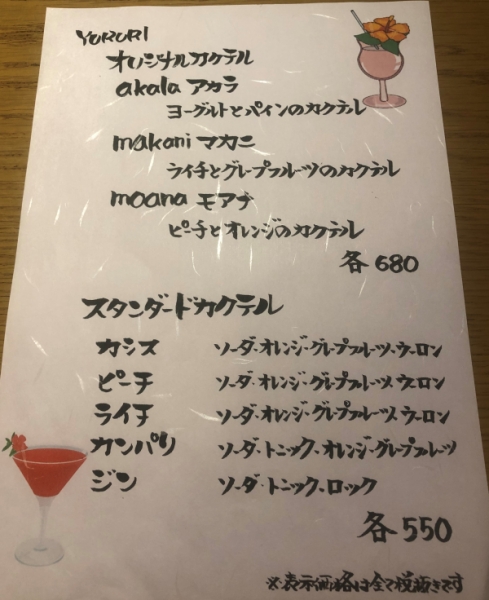 YURURI
オリジナルカクテル
akala アカラ
ヨーグルトとパインのカクテル
makani マカニ
ライチとグレープフルーツのカクテル
moana モアナ
ピーチとオレンジのカクテル
各 680
スタンダードカクテル
カシス ソーダ・オレンジ・グレープフルーツ・ウーロン
ピーチ ソーダ・オレンジ・グレープフルーツ・ウーロン
ライチ ソーダ・オレンジ・グレープフルーツ・ウーロン
カンパリ ソーダ・トニック・オレンジ・グレープフルーツ
ジン ソーダ・トニック・ロック
各 550
※表示価格は全て税抜きです